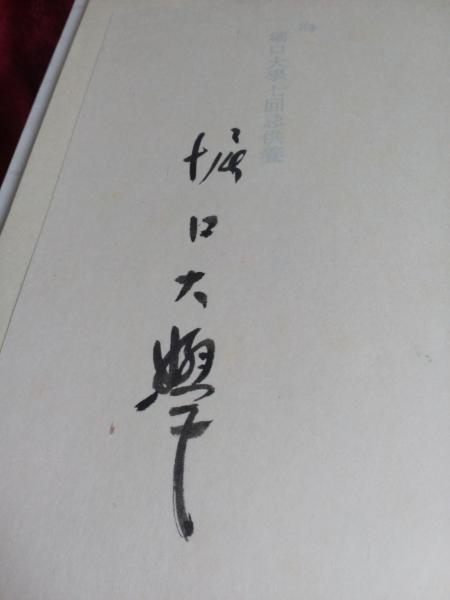 海
堀口大學七回忌供養
堀口大學